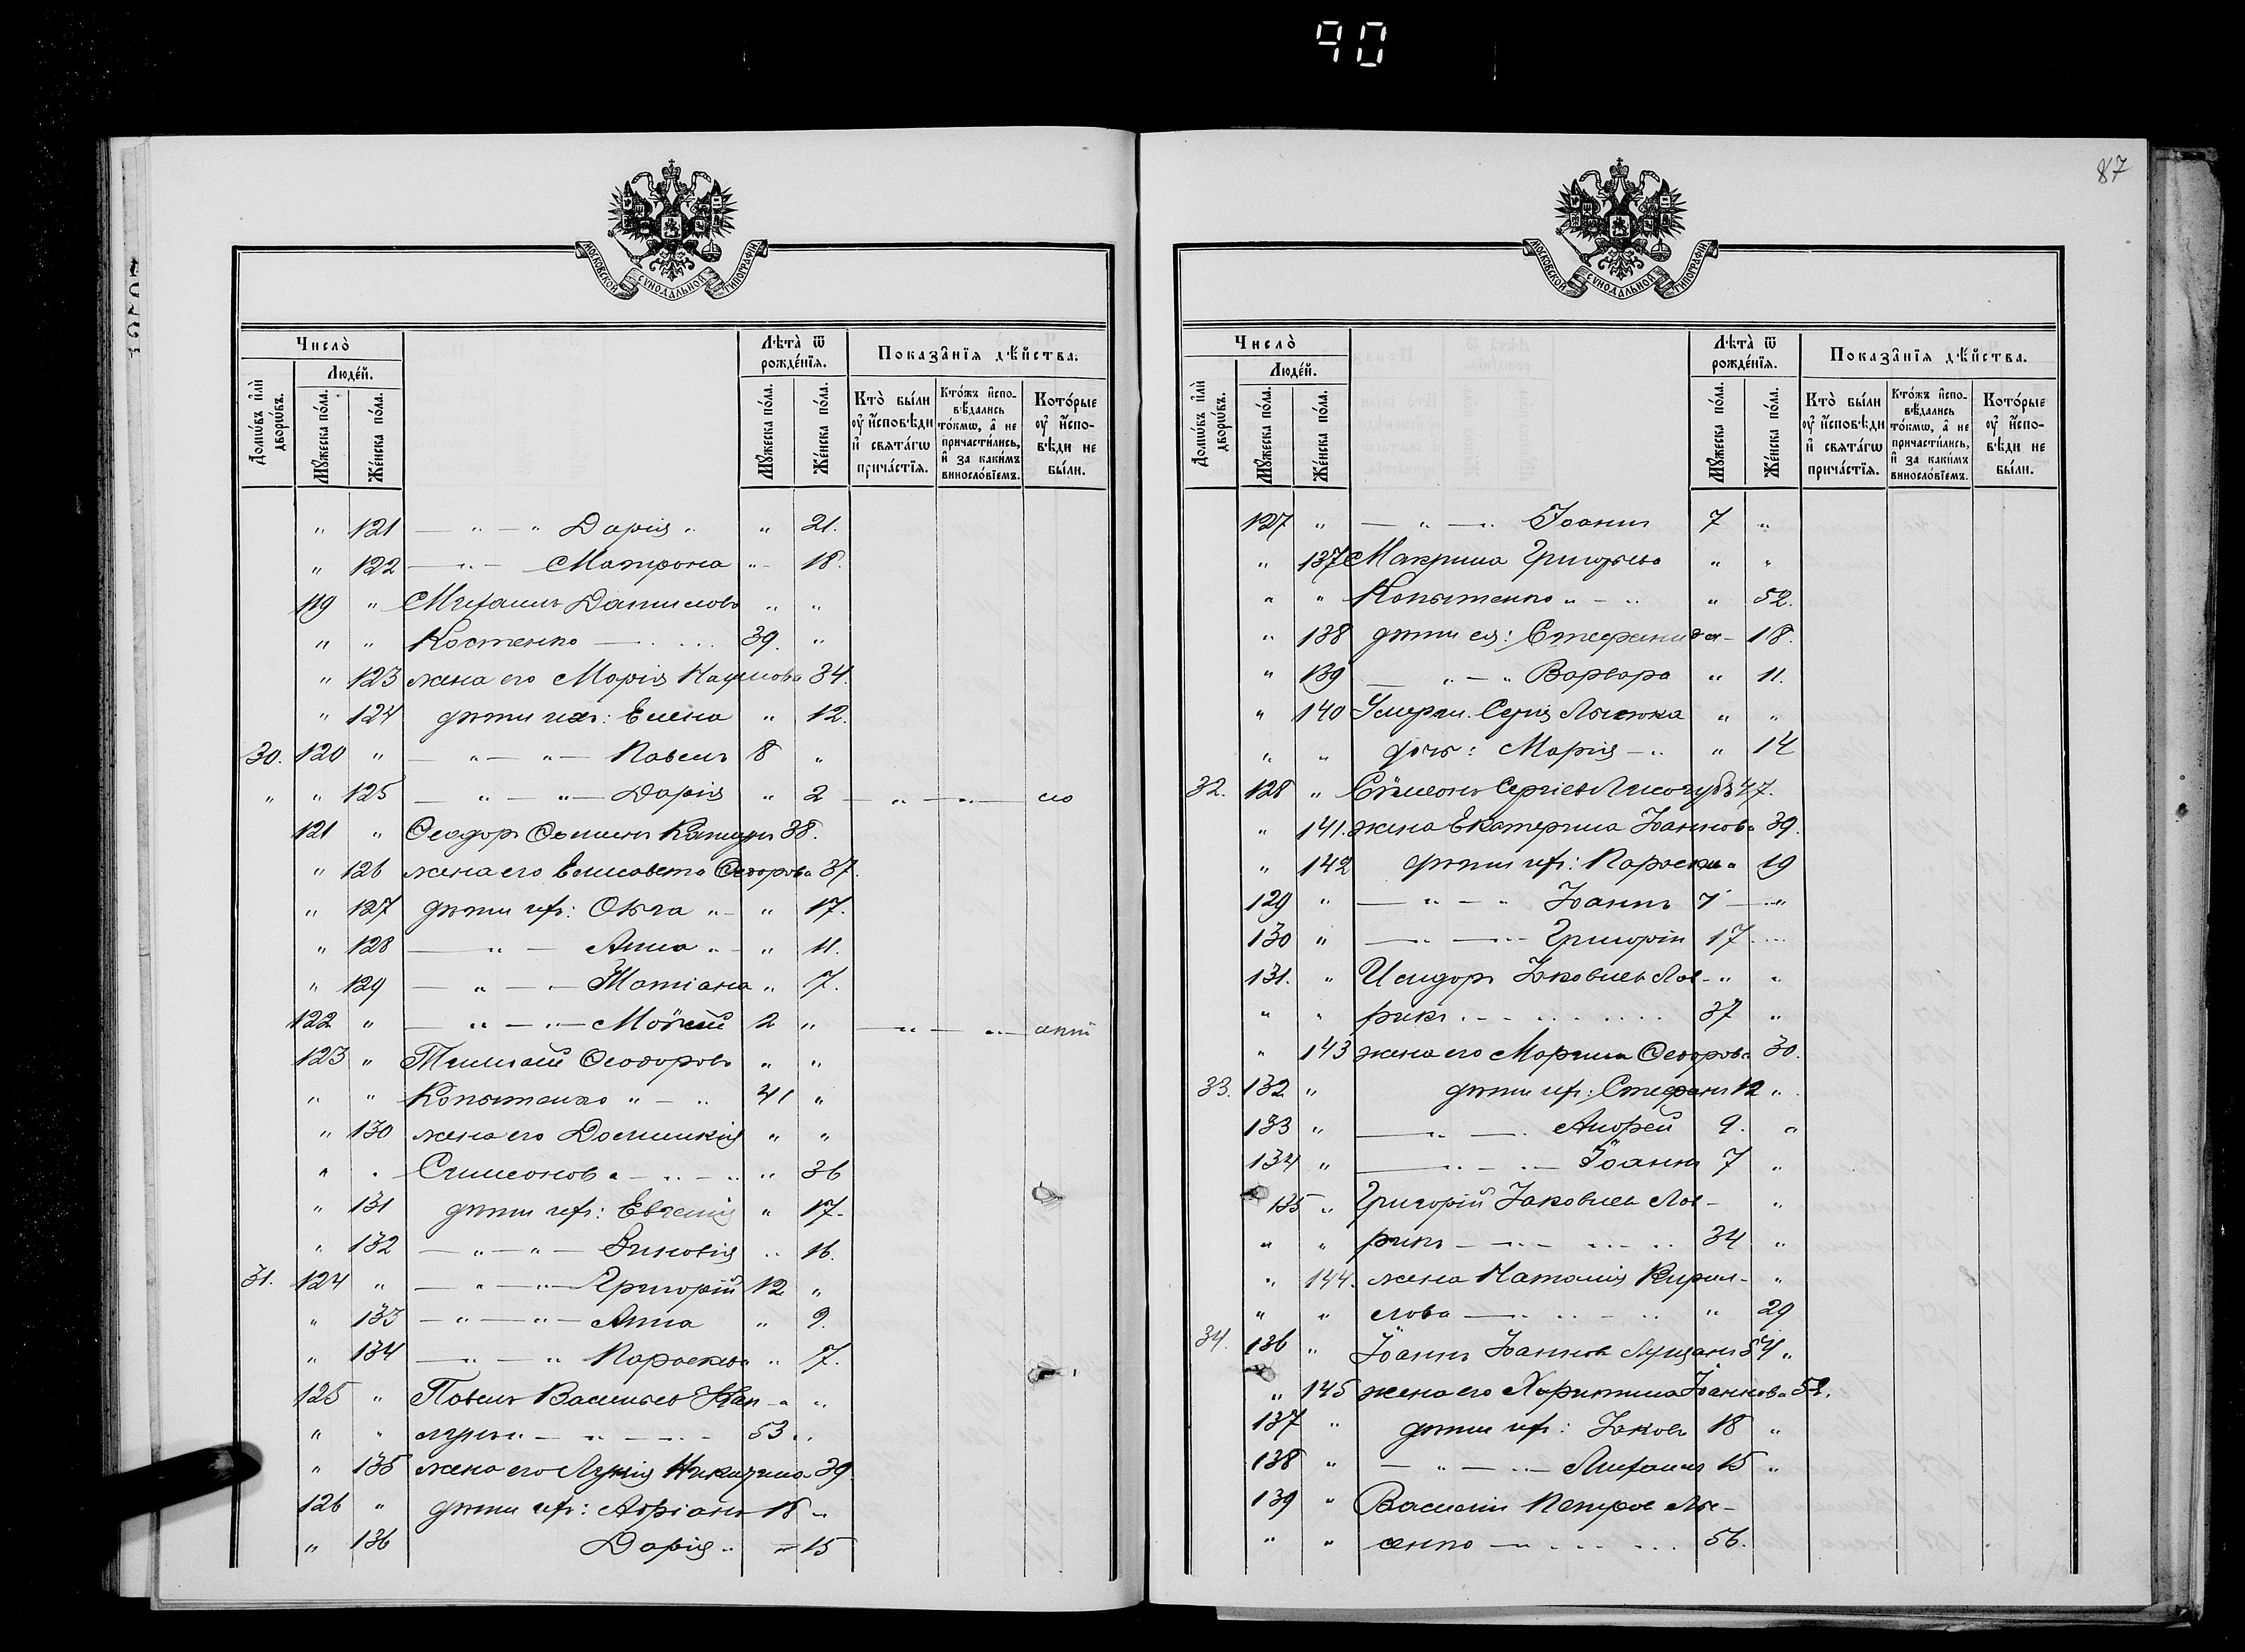 90
МОСКОВСКОЙ СѴНОДАЛЬНОЙ ТИПОГРАФІИ
Число̀
Лѣта̀ ѿ рожде́нїѧ.
Показа̂нїѧ дѣ́йства.
Люде́й.
Домѡ́въ и҆лѝ дворѡ́въ.
Мꙋ́жеска по́ла.
Же́нска по́ла.
Мꙋ́жеска по́ла.
Же́нска по́ла.
Кто̀ бы́ли ᲂу҆ и҆́сповѣди и҆ свѧта́гѡ прича́стїѧ.
Кто́жъ и҆спо-вѣ́дались то́кмѡ, а҆ не причасти́лись, и҆ за каки́мъ винослові́емъ.
Кото́рые ᲂу҆ и҆́спо-вѣди не бы́ли.
„ 121 — „ — „ Дарія „ „ 21.
„ 122 — „ — Матрона „ 18.
119 „ Михаилъ Даниловъ „ „
„ „ Костенко — 39. „
„ 123 жена его Марія Наумова 34.
„ 124 дѣти ихъ: Елена „ 12.
30. 120 „ — „ — „ — Павелъ 8 „
„ „ 125 — „ — „ — Дарія „ 2 — „ — „ —
121 „ Ѳеодоръ 38.
„ 126 жена его Елисавета Ѳеодорова 37.
„ 127 дѣти ихъ: Ольга „ — „ 17.
„ 128 — „ — Анна „ — „ 11.
„ 129 — „ — „ — Татіана „ 7.
122 „ — „ — „ — Моѵсей 2 „ — „ — „ —
123 „ Тимоѳей Ѳеодоровъ „ „
„ „ Копытенко „ — „ 41 „
„ 130 жена его Домникія „ „
„ „ Симеонова — „ — „ „ 36
„ 131 дѣти ихъ: Евгенія „ 17.
„ 132 — „ — „ — Зиновія „ 16.
31. 124 „ — „ — „ — Григорій 12 „
„ 133 — „ — „ — Анна „ 9.
„ 134 — „ — „ Параскева „ 7.
125 „ Павелъ Васильевъ „ „
„ „ 53 „
„ 135 жена его Лукія Никитина 39
126 „ дѣти ихъ: Адріанъ 18 „
„ 136 Дарія „ 15
87
МОСКОВСКОЙ СѴНОДАЛЬНОЙ ТИПОГРАФІИ
Число̀
Лѣта̀ ѿ рожде́нїѧ.
Показа̂нїѧ дѣ́йства.
Люде́й.
Домѡ́въ и҆лѝ дворѡ́въ.
Мꙋ́жеска по́ла.
Же́нска по́ла.
Мꙋ́жеска по́ла.
Же́нска по́ла.
Кто̀ бы́ли ᲂу҆ и҆́сповѣди и҆ свѧта́гѡ прича́стїѧ.
Кто́жъ и҆спо-вѣ́дались то́кмѡ, а҆ не причасти́лись, и҆ за каки́мъ винослові́емъ.
Кото́рые ᲂу҆ и҆́спо-вѣди не бы́ли.
127 „ — „ — „ Іоаннъ 7 „
„ 137 Макрина Григорьева „ „
„ „ Копытенко „ — „ „ 52.
„ 138 дѣти ея: Стефанида — 18.
„ 139 — „ — „ Варвара „ 11.
„ 140 Умерш. „ „
„ „ дочь: Марія — „ „ 14
32. 128 „ Сѵмеонъ Сергіевъ Лисогубъ 47.
„ 141. жена Екатерина Іоаннова 39.
„ 142 дѣти ихъ: Параскева 19
129 „ — „ — „ Іоаннъ 7 — „
130 „ — „ — „ Григорій 17
131. „ Исидоръ Іаковлевъ Лав- „ „
„ „ рикъ 37 „
„ 143 жена его Марина Ѳеодорова 30.
33. 132 „ дѣти ихъ: Стефанъ 12 „
133 „ — „ — Андрей 9. „
134 „ — „ — „ — Іоаннъ 7 „
135 „ Григорій Іаковлевъ Лав- „
„ „ рикъ — „ 34 „
„ 144. жена Наталія Кирил- „
„ „ лова — „ „ 29
34. 136 „ Іоаннъ Іоанновъ Луцанъ 54 „
„ 145 жена его Харитина Іоаннова 52.
137 „ дѣти ихъ: Іаковъ 18 „
138 „ — „ — „ — Михаилъ 15 „
139 „ Василій Петровъ Лы-
„ „ сенко — „ 56.